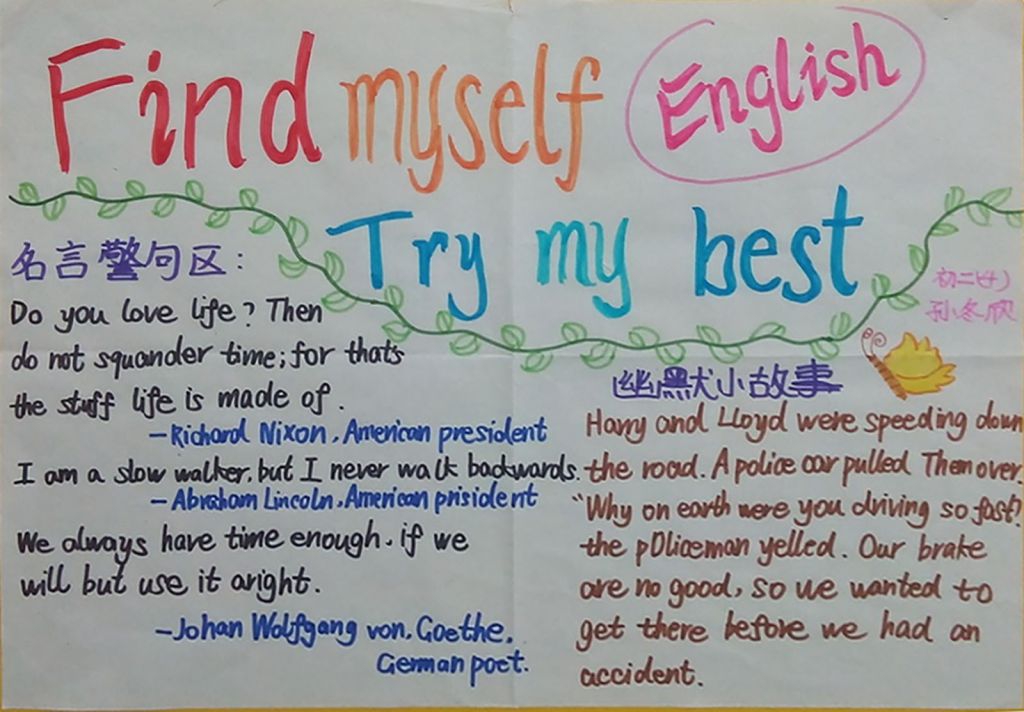 Find myself English
Try my best
名言警句区:
Do you love life? Then
do not squander time; for thats
the stuff life is made of.
—Richard Nixon, American president
I am a slow walker, but I never walk backwards.
—Abraham Lincoln, American prisident
We always have time enough, if we
will but use it aright.
—Johan Wolfgang von, Goethe,
German poet.
初二(4)
孙冬欣
幽默小故事
Harry and Lloyd were speeding down
the road. A police car pulled Them over.
"Why on earth were you driving so fast?
the pOliceman yelled. Our brake
are no good, so we wanted to
get there before we had an
accident.